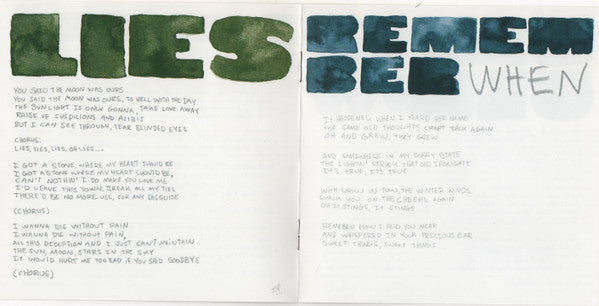 LIES
YOU SAID THE MOON WAS OURS
YOU SAID THE MOON WAS OURS, TO HELL WITH THE DAY
THE SUNLIGHT IS ONLY GONNA, TAKE LOVE AWAY
RAISE UP SUSPICIONS AND ALIBIS
BUT I CAN SEE THROUGH, TEAR BLINDED EYES
CHORUS:
LIES, LIES, LIES, OH LIES...
I GOT A STONE, WHERE MY HEART SHOULD BE
I GOT A STONE WHERE MY HEART SHOULD BE,
CAN'T NOTHIN' I DO MAKE YOU LOVE ME
I'D LEAVE THIS TOWN, BREAK ALL MY TIES
THERE'D BE NO MORE USE, FOR ANY DISGUISE
(CHORUS)
I WANNA DIE WITHOUT PAIN
I WANNA DIE WITHOUT PAIN,
ALL THIS DECEPTION AND I JUST CAN'T MAINTAIN
THE SUN, MOON, STARS IN THE SKY
IT WOULD HURT ME TOO BAD IF YOU SAID GOODBYE
(CHORUS)
REMEM
BER WHEN
IT HAPPENED WHEN I HEARD HER NAME
YOU SAME OLD THOUGHTS CREPT BACK AGAIN
OH AND GREW, THEY GREW
AND SOMEWHERE IN MY SORRY STATE
THE LIGHTNIN' STRUCK THAT OLD
IT'S TRUE, IT'S TRUE
WHEN SNOW IN TOW, THE WINTER WINDS
SMACK YOU ON THE CHEEKS AGAIN
OH IT STINGS, IT STINGS
HOW I HELD YOU NEAR
AND WHISPERED IN YOUR PRECIOUS EAR
SWEET THINGS, SWEET THINGS